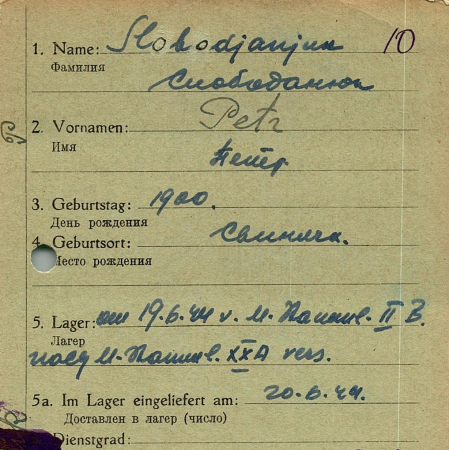 10
1. Name: Slobodjanjuk
Фамилия
Слободанюк
2. Vornamen: Petr
Имя
Петр
3. Geburtstag: 1900.
День рождения
4. Geburtsort:
Место рождения
5. Lager: am 19.6.44 v. M.-Stamml. II B.
Лагер
nach M.-Stamml. XXA vers.
5a. Im Lager eingeliefert am: 20.6.44.
Доставлен в лагер (число)
6. Dienstgrad: